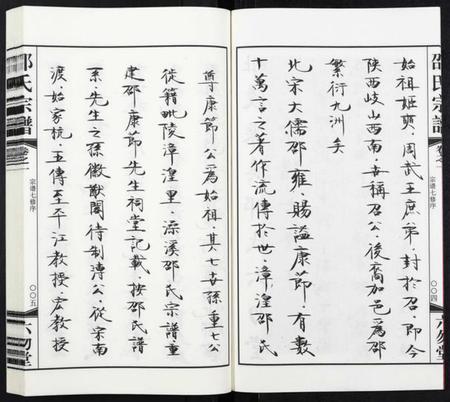 邵氏宗譜
卷之
宗谱七修序
〇〇四
六勿堂
始祖姬奭、周武王庶弟、封於召、即今
陝西岐山西南、吉稱召公、後裔加邑爲邵
繁衍九洲矣
北宋大儒邵雍、賜謚康節、有數
十萬言之著作流傳於世、漳湟邵氏
尊康節公爲始祖、其七世孫重七公
徙籍毗陵漳湟里、深溪邵氏宗譜重
建邵康節先生祠堂記載、按邵氏譜
系、先生之孫徽猷閣待制溥公、從宋南
渡、始家杭、五傳至平江教授、宏教授
邵氏宗譜
宗谱七修序
〇〇五
六勿堂